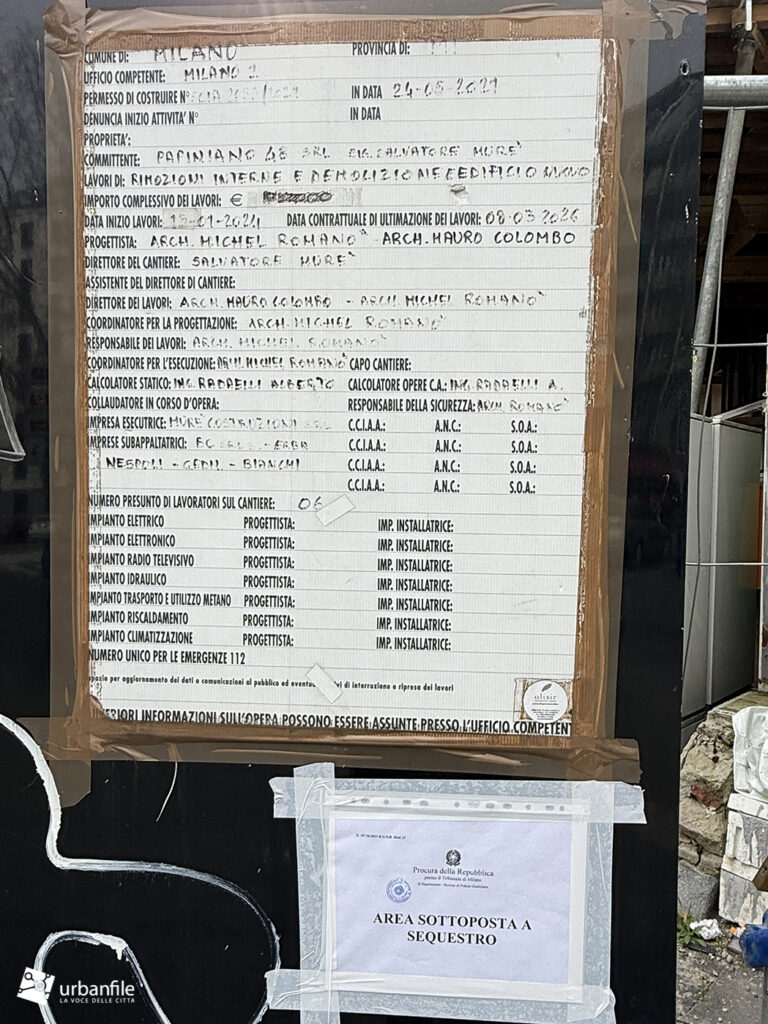 COMUNE DI: MILANO PROVINCIA DI: MI
UFFICIO COMPETENTE: MILANO 2
PERMESSO DI COSTRUIRE N° IN DATA 24-05-2021
DENUNCIA INIZIO ATTIVITA' N° IN DATA
PROPRIETA':
COMMITTENTE: PAPINIANO 48 SRL SIG. SALVATORE MURE'
LAVORI DI: RIMOZIONI INTERNE E DEMOLIZIONE EDIFICIO NUOVO
IMPORTO COMPLESSIVO DEI LAVORI: €
DATA INIZIO LAVORI: 15-01-2024 DATA CONTRATTUALE DI ULTIMAZIONE DEI LAVORI: 08-03-2026
PROGETTISTA: ARCH. MICHEL ROMANO' - ARCH. MAURO COLOMBO
DIRETTORE DEL CANTIERE: SALVATORE MURE'
ASSISTENTE DEL DIRETTORE DI CANTIERE:
DIRETTORE DEI LAVORI: ARCH. MAURO COLOMBO - ARCH. MICHEL ROMANO'
COORDINATORE PER LA PROGETTAZIONE: ARCH. MICHEL ROMANO'
RESPONSABILE DEI LAVORI: ARCH. MICHEL ROMANO'
COORDINATORE PER L'ESECUZIONE: ARCH. MICHEL ROMANO' CAPO CANTIERE:
CALCOLATORE STATICO: ING. RADAELLI ALBERTO CALCOLATORE OPERE C.A.: ING. RADAELLI A.
COLLAUDATORE IN CORSO D'OPERA: RESPONSABILE DELLA SICUREZZA: ARCH. ROMANO'
IMPRESA ESECUTRICE: MURE' COSTRUZIONI SRL C.C.I.A.A.: A.N.C.: S.O.A.:
IMPRESE SUBAPPALTATRICI: - ERBA C.C.I.A.A.: A.N.C.: S.O.A.:
NESPOLI - GEDIL - BIANCHI C.C.I.A.A.: A.N.C.: S.O.A.:
C.C.I.A.A.: A.N.C.: S.O.A.:
NUMERO PRESUNTO DI LAVORATORI SUL CANTIERE: 06
IMPIANTO ELETTRICO PROGETTISTA: IMP. INSTALLATRICE:
IMPIANTO ELETTRONICO PROGETTISTA: IMP. INSTALLATRICE:
IMPIANTO RADIO TELEVISIVO PROGETTISTA: IMP. INSTALLATRICE:
IMPIANTO IDRAULICO PROGETTISTA: IMP. INSTALLATRICE:
IMPIANTO TRASPORTO E UTILIZZO METANO PROGETTISTA: IMP. INSTALLATRICE:
IMPIANTO RISCALDAMENTO PROGETTISTA: IMP. INSTALLATRICE:
IMPIANTO CLIMATIZZAZIONE PROGETTISTA: IMP. INSTALLATRICE:
NUMERO UNICO PER LE EMERGENZE 112
spazio per aggiornamento dei dati o comunicazioni al pubblico ed di interruzione e ripresa dei lavori
ERIORI INFORMAZIONI SULL'OPERA POSSONO ESSERE ASSUNTE PRESSO L'UFFICIO COMPETENT
Procura della Repubblica
presso il Tribunale di Milano
AREA SOTTOPOSTA A
SEQUESTRO
urbanfile
LA VOCE DELLE CITTÀ